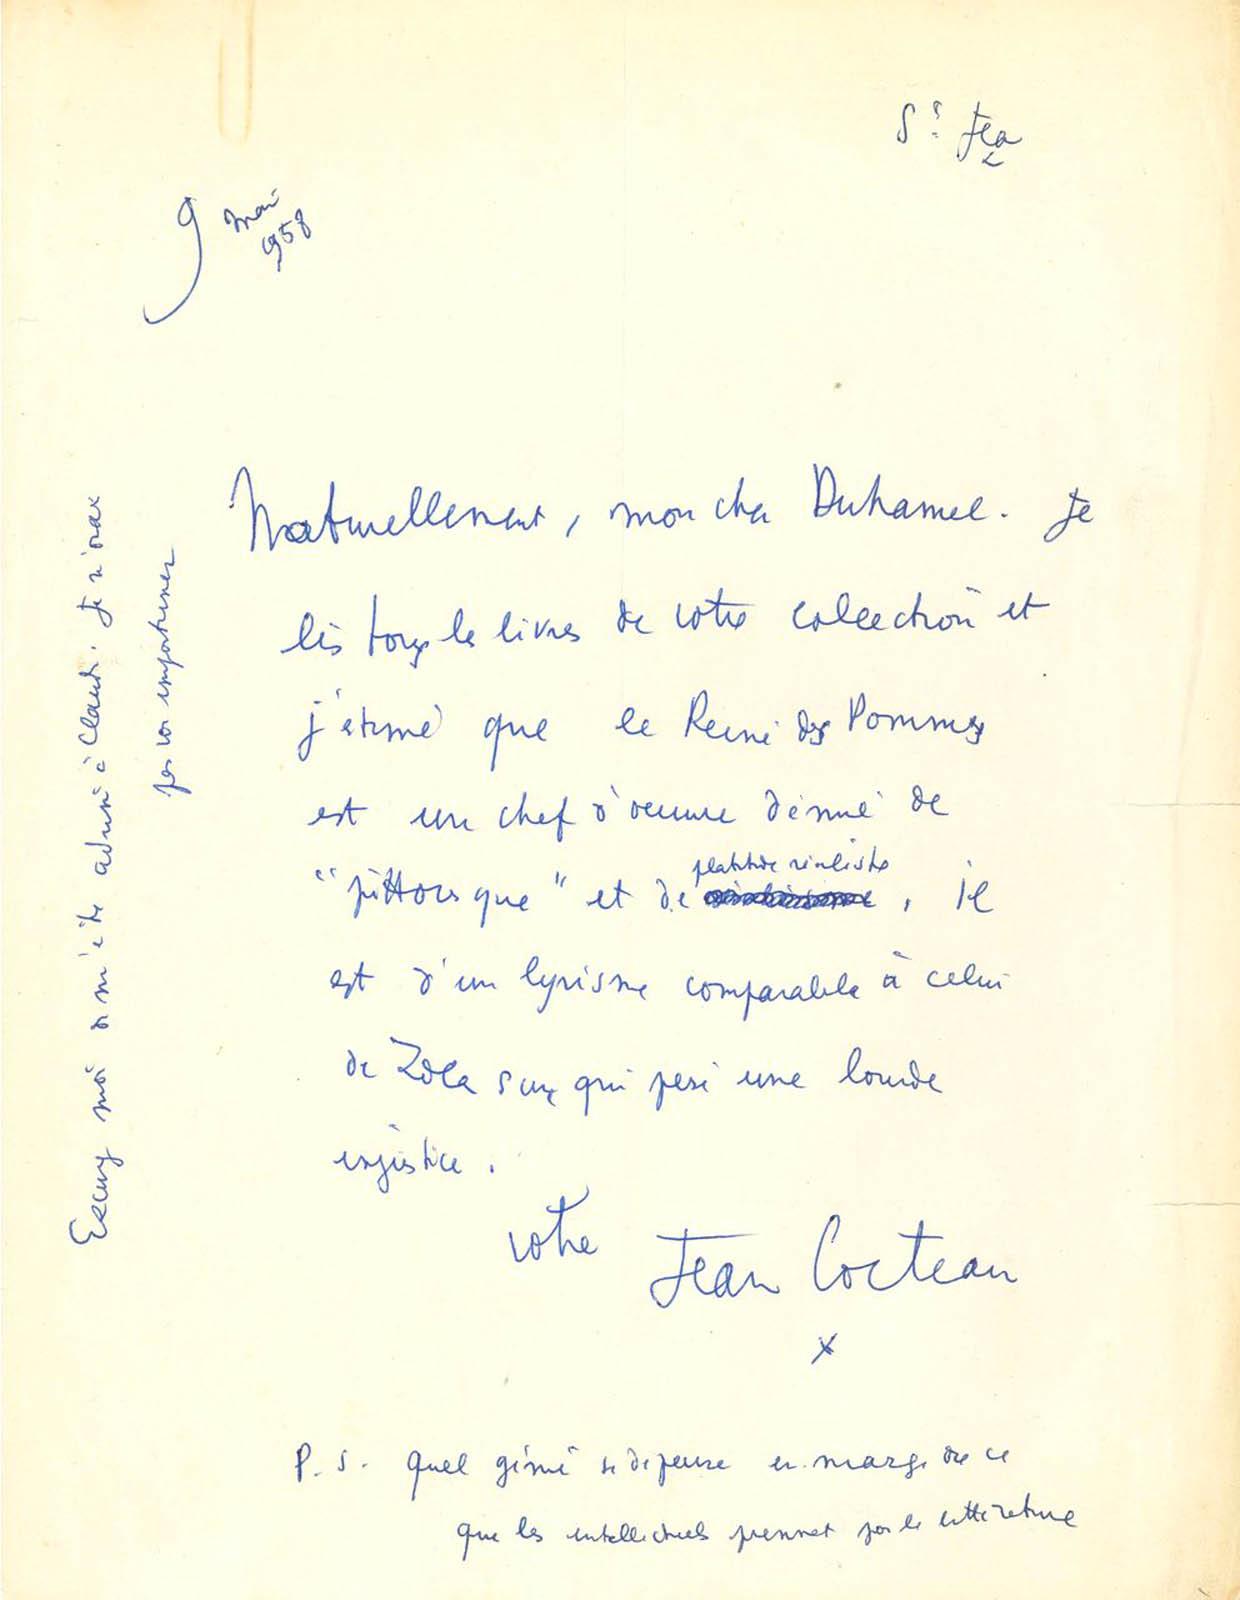 St Jean
9 mai
1958
Naturellement, mon cher Duhamel. Je
lis tous les livres de votre collection et
j'estime que la Reine des Pommes
est un chef d'œuvre dénué de
"pittoresque" et de platitude réaliste, il
est d'un lyrisme comparable à celui
de Zola sur qui pèse une lourde
injustice.
votre Jean Cocteau
P.S. Quel génie se dépense en marge de ce
que les intellectuels prennent pour la littérature
Excusez moi de m'être adressé à Claude. Je n'osais
pas vous importuner